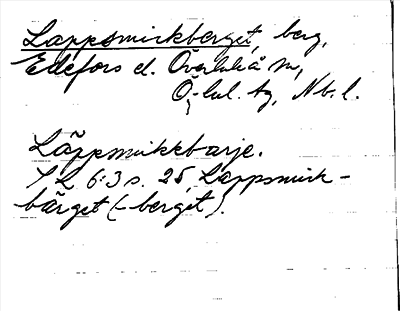 Lappsmirkberget, berg,
Edefors d. Överluleå sn,
Ö. lul. tg, Nb. l.
Läppsmirkbarje.
S L 6:3 s. 25, Lappsmirk-
bärget (-berget).